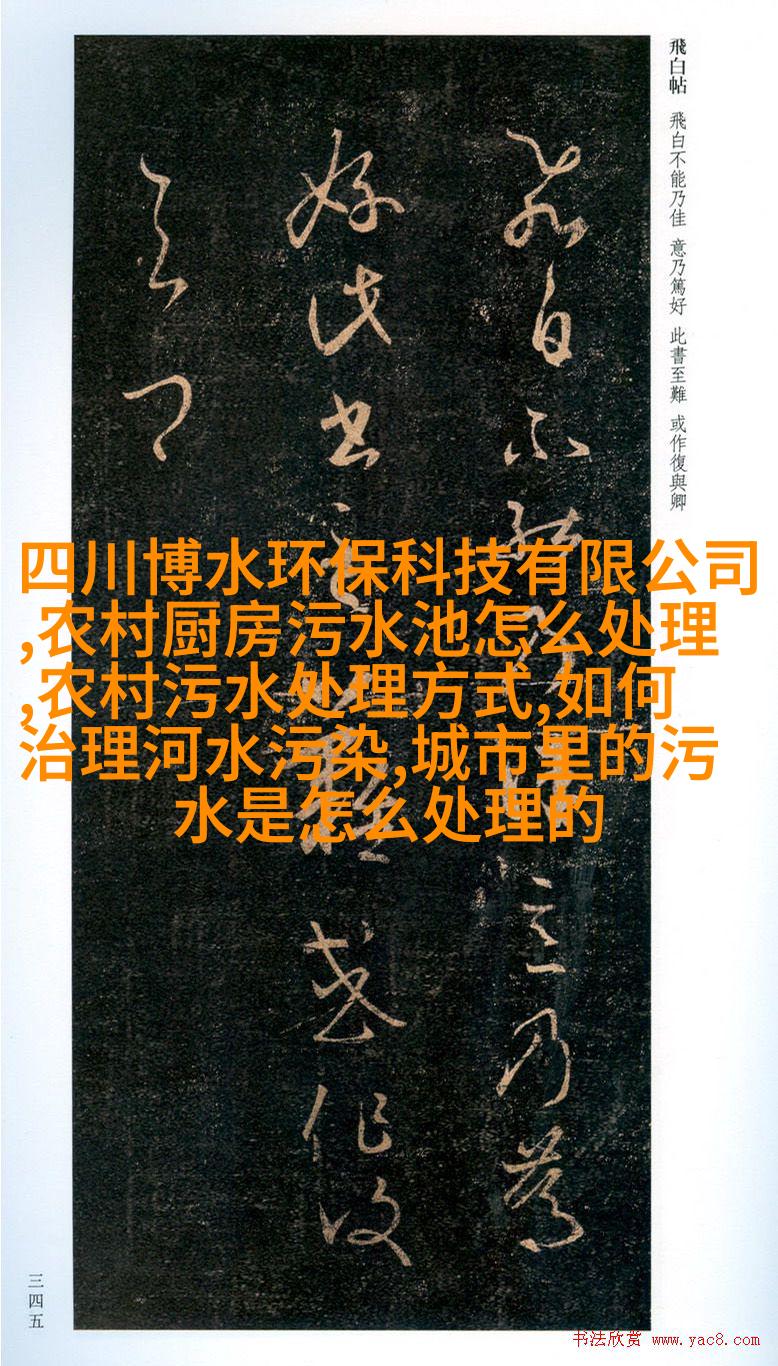 飛白帖 飛白不能乃佳 意乃篤好 此書至難 或作復與卿
飛白不能乃佳意乃篤
好此書至難或作復
與卿
四川博水环保科技有限公司
,农村厨房污水池怎么处理
,农村污水处理方式,如何
治理河水污染,城市里的污
水是怎么处理的
三四五
书法欣赏 www.yac8.com